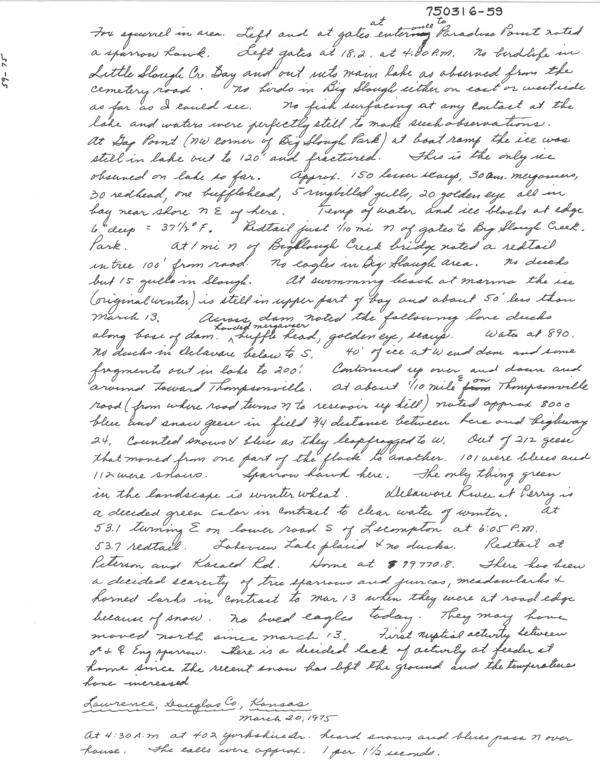 750316-59
59-75
Fox squirrel in area. Left and at gates at entering onelle to Paradise Point noted
a sparrow hawk. Left gates at 18.2 at 4:00 P.M. No birdlife in
Little Slough Cr. Bay and out into main lake as observed from the
cemetery road. No birds in Big Slough either on east or westside
as far as I could see. No fish surfacing at any contact at the
lake and waters were perfectly still to make such observations.
At Gag Point (NW corner of Big Slough Park) at boat ramp the ice was
still in lake out to 120' and fractured. This is the only ice
observed on lake so far. Approx. 150 lesser scaups, 30 am. mergansers,
30 redhead, one bufflehead, 5 ringbilled gulls, 20 golden eye all in
bay near shore N E of here. Temp of water and ice blocks at edge
6" deep = 37½° F. Redtail just 1/10 mi N of gates to Big Slough Creek
Park. At 1 mi N of Big Slough Creek bridge noted a redtail
in tree 100' from road. No eagles in Big Slough area. No ducks
but 15 gulls in Slough. At swimming beach at marina the ice
(original winter) is still in upper part of bay and about 50' less than
March 13. Across dam noted the following lone ducks
along base of dam. hooded merganser, buffle head, goldeneye, scaup. Water at 890.
No ducks in Delaware below to S. 40' of ice at W end dam and some
fragments out in lake to 200'. Continued up over and down and
around toward Thompsonville. At about 1/10 mile E on Thompsonville
road (from where road turns N to reservoir up hill) noted approx 8000
blue and snow geese in field 3/4 distance between here and highway
24. Counted snows & blues as they leapfrogged to W. Out of 212 geese
that moved from one part of the flock to another. 101 were blues and
112 were snows. Sparrow hawk here. The only thing green
in the landscape is winter wheat. Delaware River at Perry is
a decided green color in contrast to clear water of winter. At
53.1 turning E on lower road S of Lecompton at 6:05 P.M.
53.7 redtail. Lakeview Lake placid & no ducks. Redtail at
Peterson and Kasold Rd. Home at 79770.8. There has been
a decided scarcity of tree sparrows and juncos, meadowlarks &
horned larks in contrast to Mar 13 when they were at road edge
because of snow. No bald eagles today. They may have
moved north since March 13. First nuptial activity between
♂ & ♀ Eng sparrow. There is a decided lack of activity at feeder at
home since the recent snow has left the ground and the temperatures
have increased
Lawrence, Douglas Co., Kansas
March 20, 1975
At 4:30 A.M. at 402 Yorkshire Dr. heard snows and blues pass N over
house. The calls were approx. 1 per 1½ seconds.